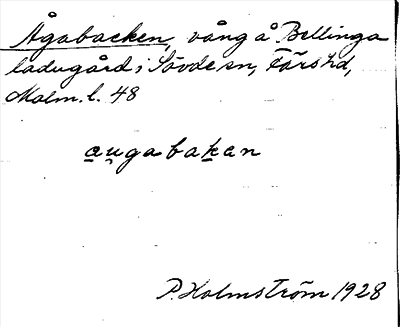 Ågabacken, vång å Bellinga
ladugård i Sövde sn, Färs hd,
Malm. l. 48
au̯gabakan
P. Holmström 1928